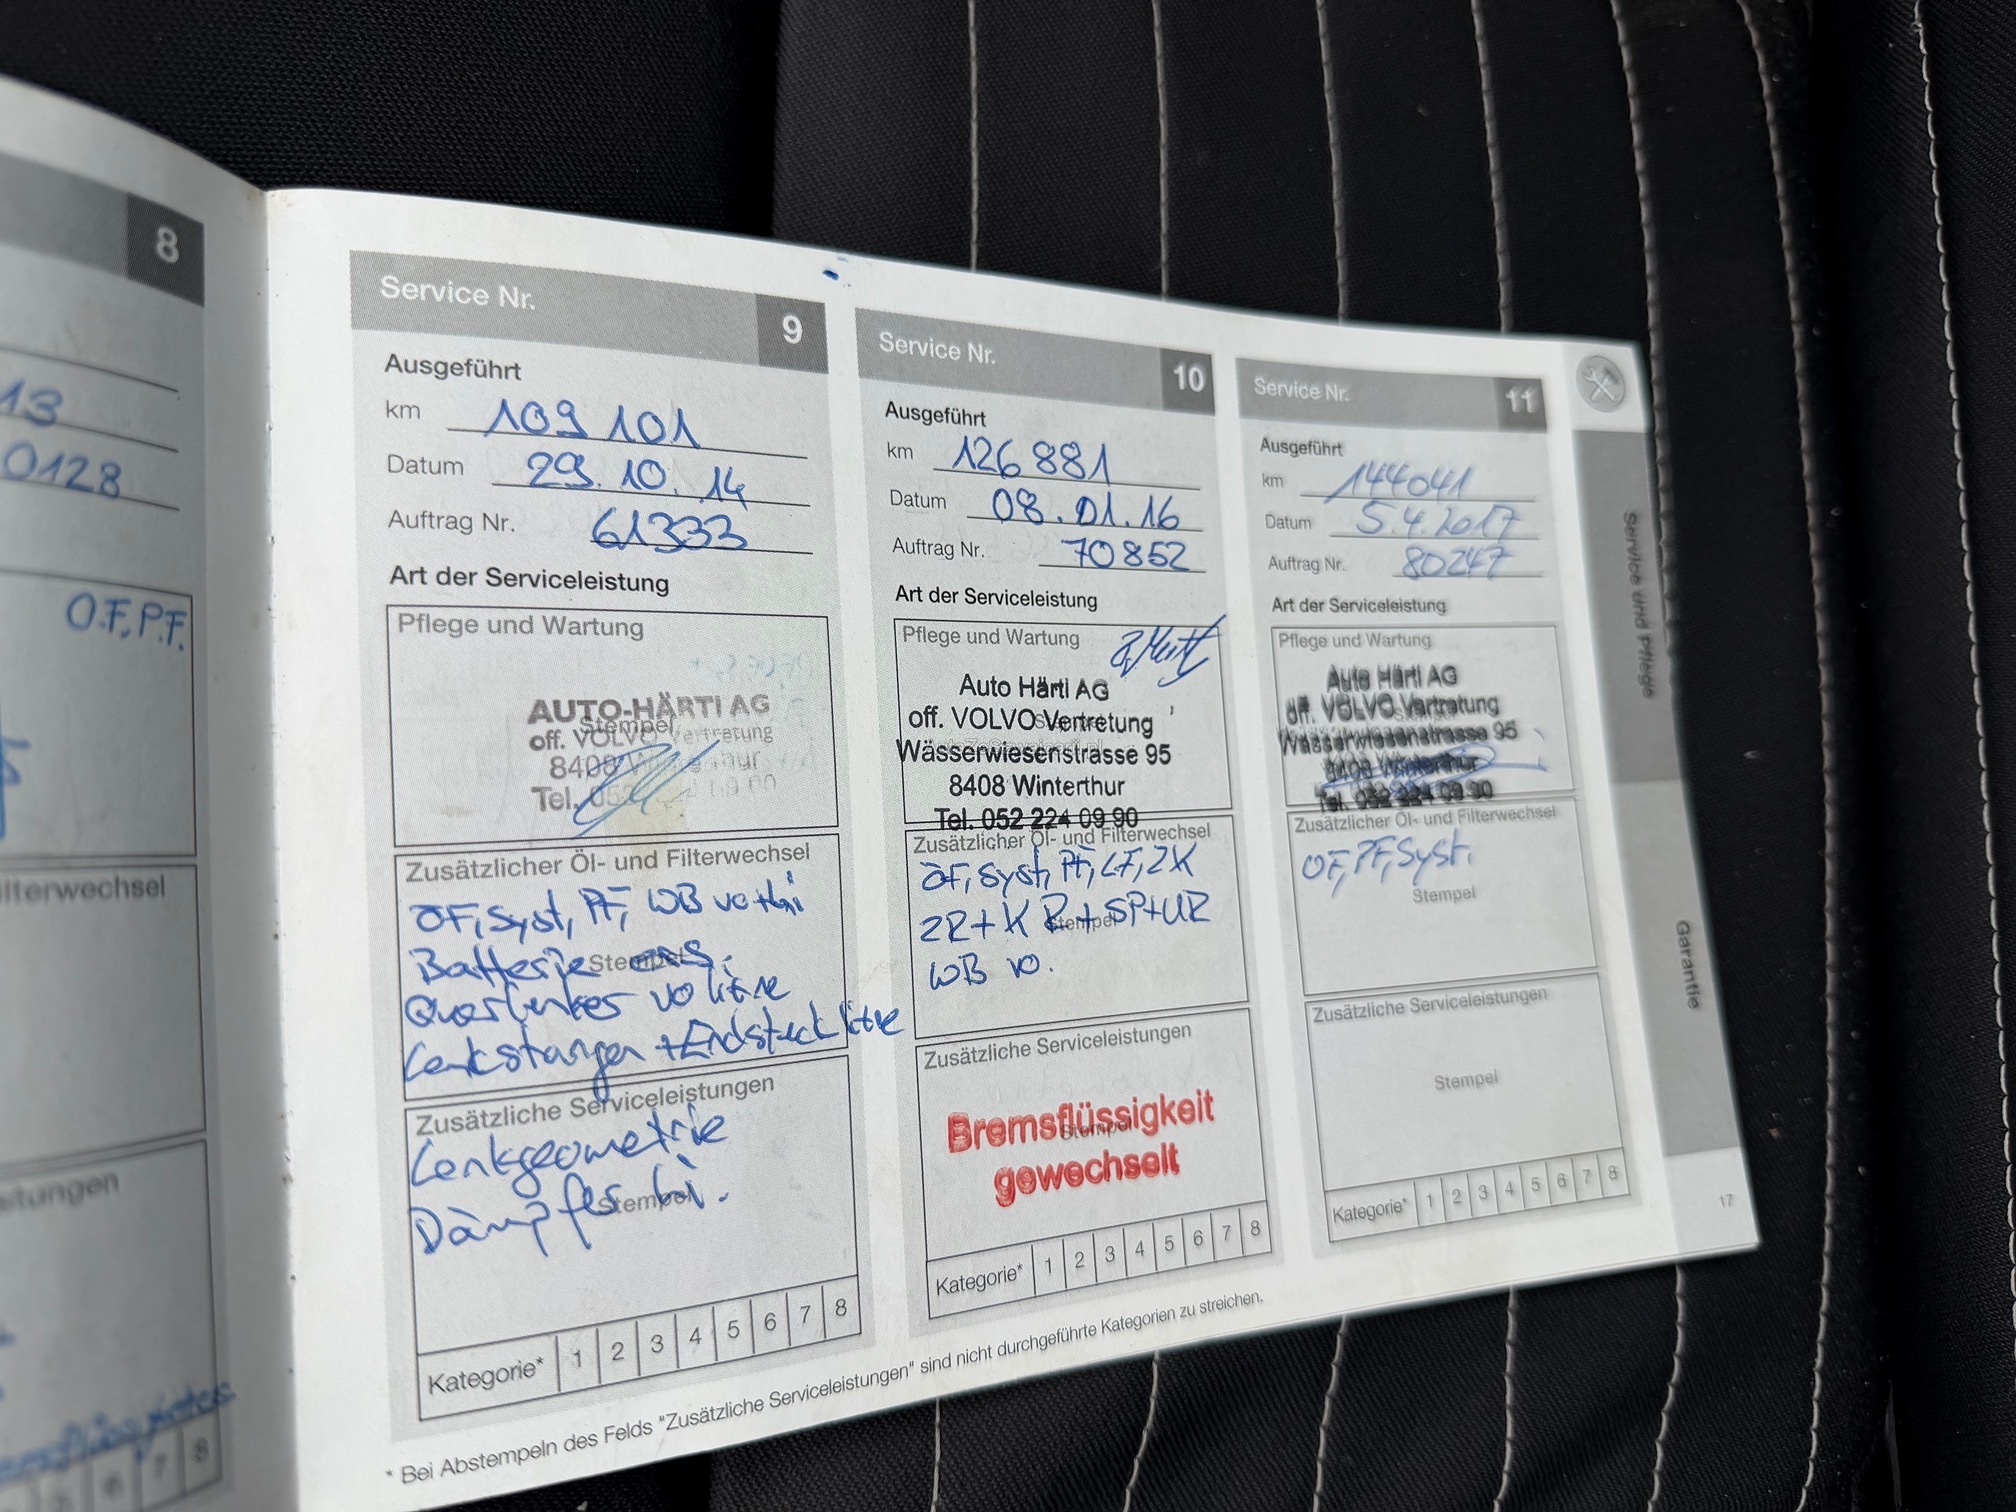 8
13
0128
O.F, P.F.
ilterwechsel
eistungen
7 8
Service Nr. 9
Ausgeführt
km 109 101
Datum 29.10.14
Auftrag Nr. 61333
Art der Serviceleistung
Pflege und Wartung
AUTO-HÄRTI AG
Stempel
off. VOLVO Vertretung
8408
Tel.
Zusätzlicher Öl- und Filterwechsel
ÖF, Syst, PF, WB vo+hi
Batterie ers.
Stempel
Querlenker vo li+re
Lenkstangen +Endstück li+re
Zusätzliche Serviceleistungen
Lenkgeometrie
Dämpfer hi.
Stempel
Kategorie* 1 2 3 4 5 6 7 8
Service Nr. 10
Ausgeführt
km 126 881
Datum 08.01.16
Auftrag Nr. 70852
Art der Serviceleistung
Pflege und Wartung
Auto Härti AG
off. VOLVO Vertretung
Wässerwiesenstrasse 95
8408 Winterthur
Tel. 052 224 09 90
Zusätzlicher Öl- und Filterwechsel
ÖF, Syst, PF, LF, ZK
ZR+K R+SP+UR
Stempel
WB vo.
Zusätzliche Serviceleistungen
Bremsflüssigkeit
Stempel
gewechselt
Kategorie* 1 2 3 4 5 6 7 8
Service Nr. 11
Ausgeführt
km 144041
Datum 5.4.2017
Auftrag Nr. 80247
Art der Serviceleistung
Pflege und Wartung
Auto Härti AG
off. VOLVO Vertretung
Wässerwiesenstrasse 95
8408 Winterthur
Tel. 052 224 09 90
Zusätzlicher Öl- und Filterwechsel
OF, PF, Syst.
Stempel
Zusätzliche Serviceleistungen
Stempel
Kategorie* 1 2 3 4 5 6 7 8
* Bei Abstempeln des Felds "Zusätzliche Serviceleistungen" sind nicht durchgeführte Kategorien zu streichen.
Service und Pflege
Garantie
17